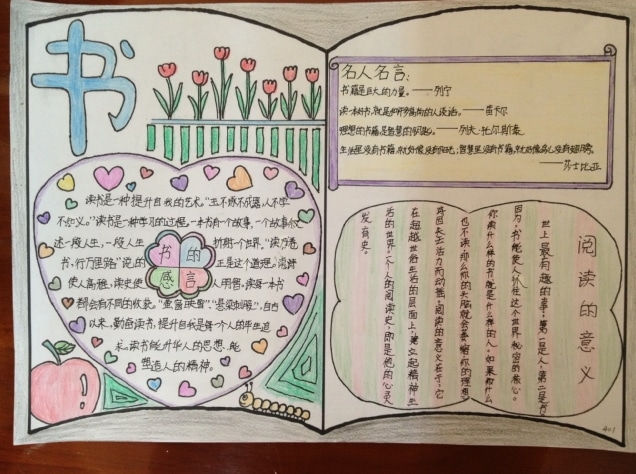 书
读书是一种提升自我的艺术。"玉不琢不成器,人不学
不知义。"读书是一种学习的过程。一本书有一个故事,一个故事叙
述一段人生,一段人生折射一个世界。"读万卷
书,行万里路"说的正是这个道理。读诗
使人高雅,读史使人明智,读每一本书
都会有不同的收获。"囊萤映雪","悬梁刺股",自古
以来,勤奋读书,提升自我是每一个人的毕生追
求。读书能升华人的思想,能
塑造人的精神。
书的
感言
名人名言:
书籍是巨大的力量。——列宁
读一本好书,就是和许多高尚的人谈话。——笛卡尔
理想的书籍是智慧的钥匙。——列夫·托尔斯泰
生活里没有书籍,就好像没有阳光;智慧里没有书籍,就好像鸟儿没有翅膀。
——莎士比亚
阅读的意义
世上最有趣的事:第一是人,第二是书
因为,书能使人们在这个世界秘密的核心。
你读什么样的书就是什么样的人。如果你什么
也不读,那么你的头脑就会萎缩你的理想
将因失去活力而动摇。阅读的意义在于,它
在超越世俗生活的层面上,建立起精神生
活的世界。一个人的阅读史,即是他的心灵
发育史。